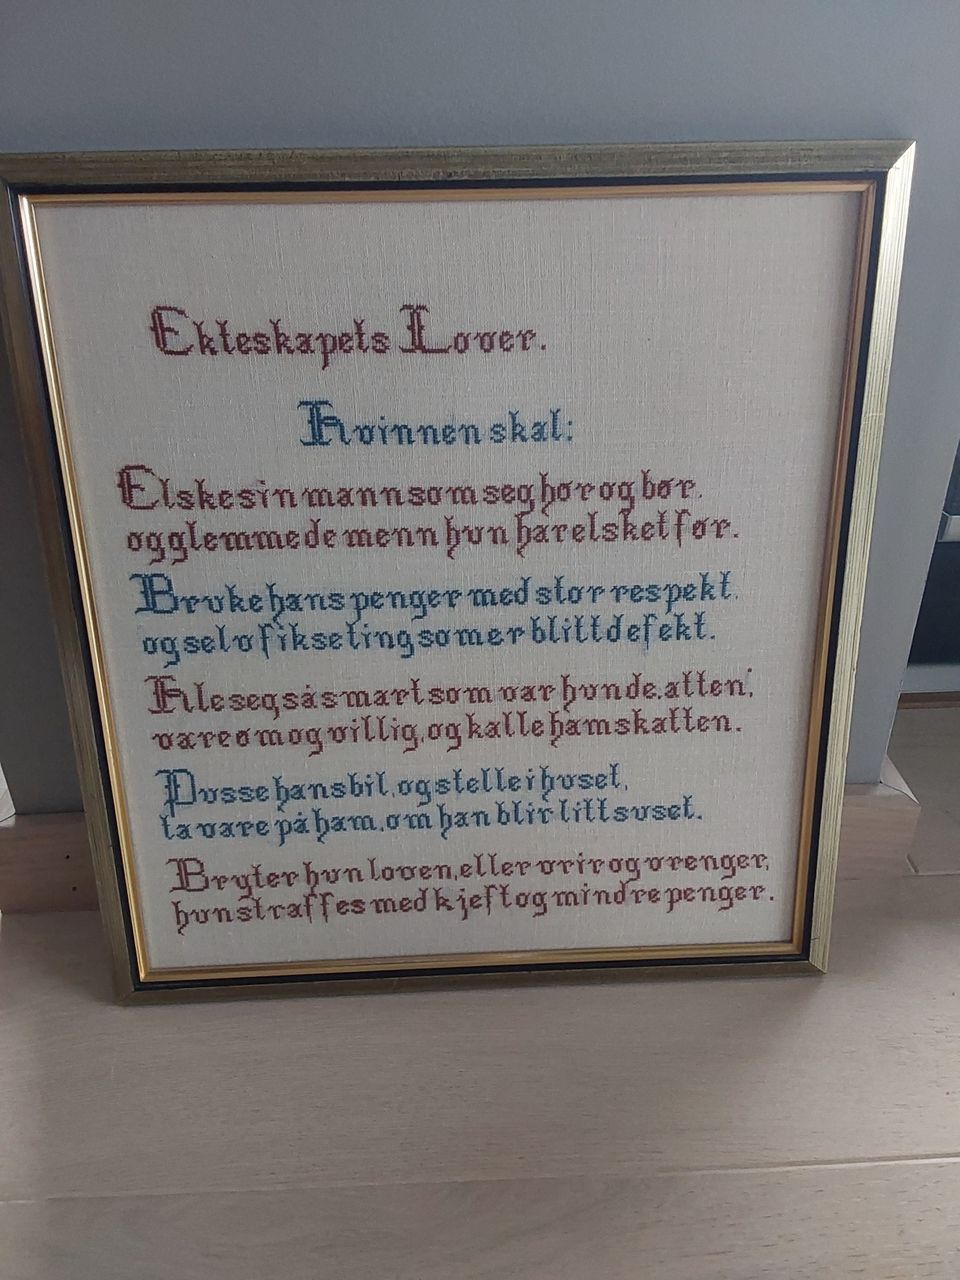 Ekteskapets Lover.
Kvinnen skal:
Elske sin mann som seg hør og bør,
og glemme de menn hun har elsket før.
Bruke hans penger med stor respekt,
og selv fikse ting som er blitt defekt.
Kle seg så smart som var hun de atten,
være øm og villig, og kalle ham skatten.
Pusse hans bil, og stelle i huset,
ta vare på ham, om han blir litt suset.
Bryter hun loven, eller vrir og vrenger,
hun straffes med kjeft og mindre penger.